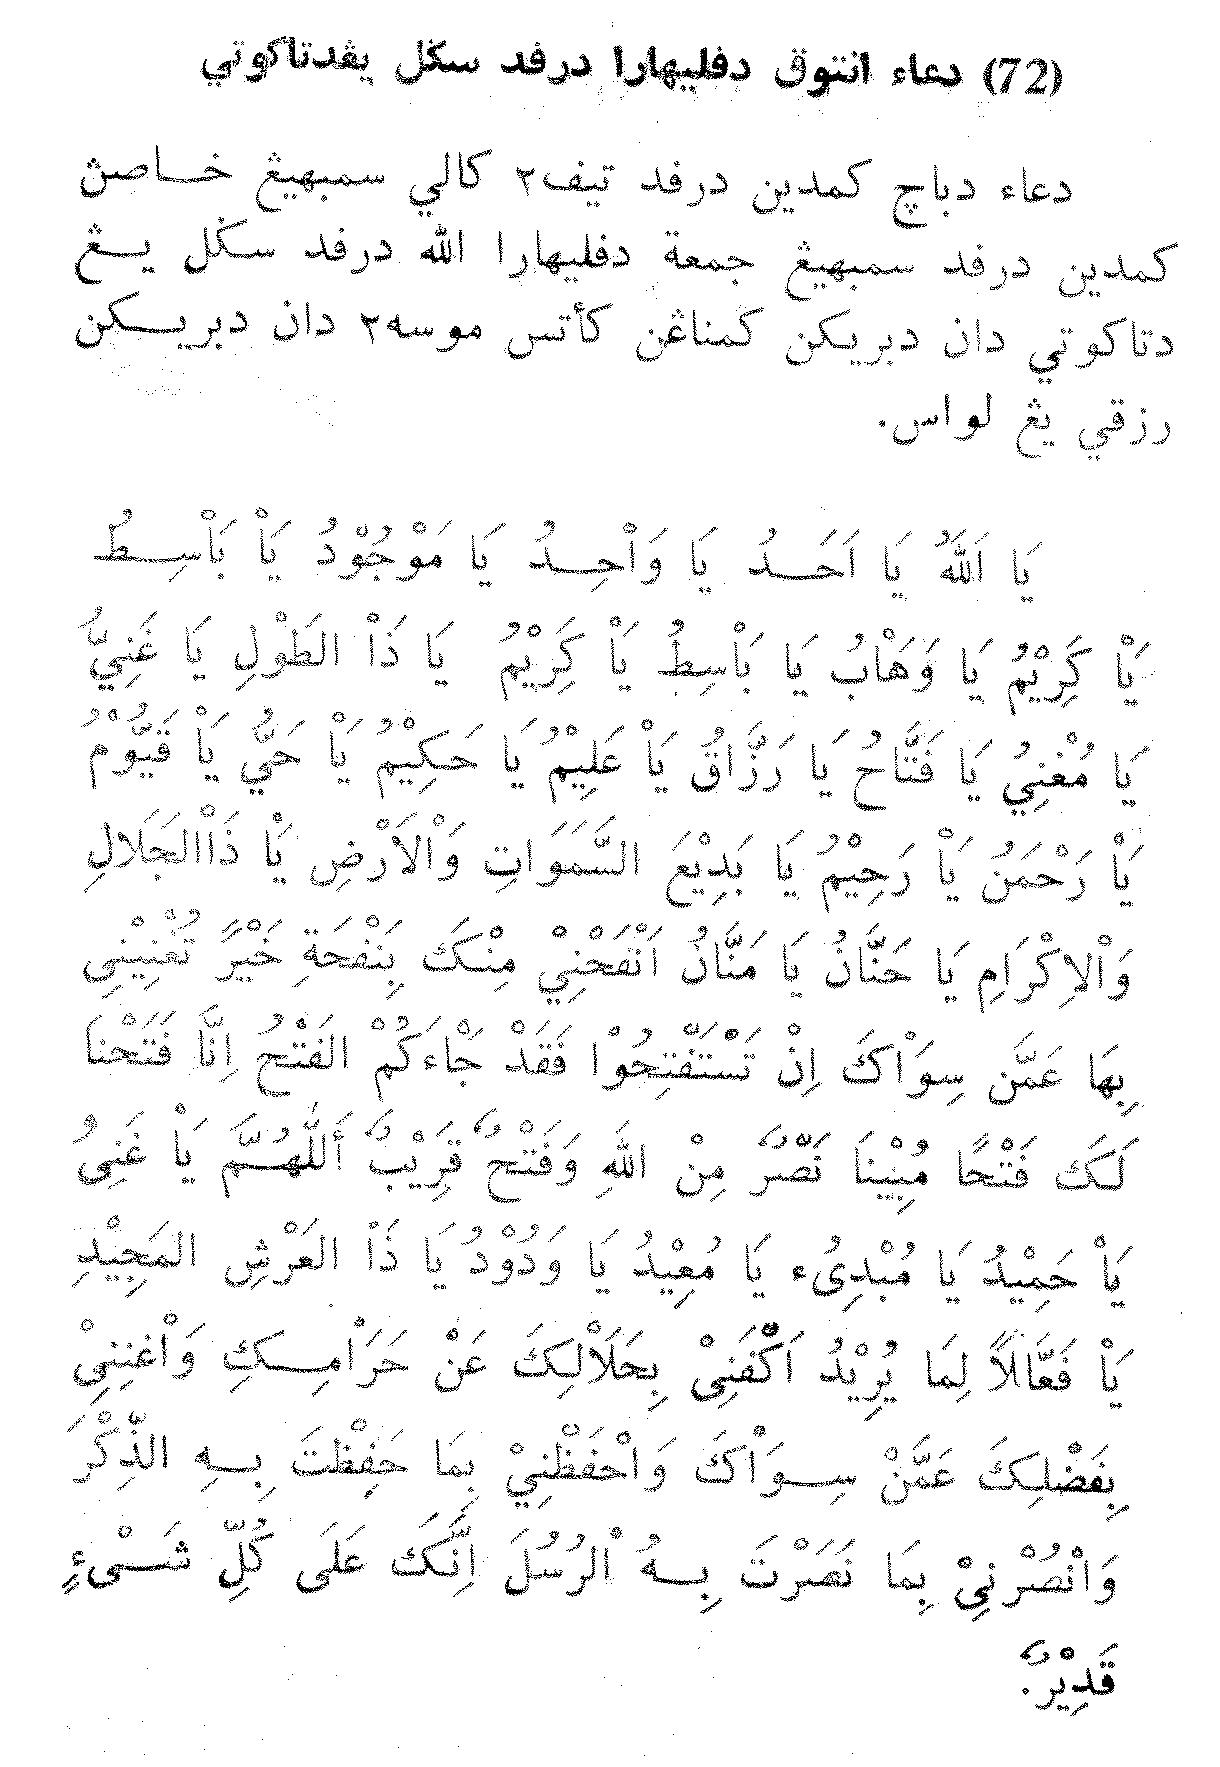 (72) دعاء انتوق دفليهارا درفد سݢل يڠدتاكوتي
دعاء دباچ كمدين درفد تيف٢ كالي سمبهيڠ خاصڽ
كمدين درفد سمبهيڠ جمعة دفليهارا الله درفد سݢل يڠ
دتاكوتي دان دبريكن كمناڠن كأتس موسه٢ دان دبريكن
رزقي يڠ لواس.
يَا اَللهُ يَا اَحَدُ يَا وَاْحِدُ يَا مَوْجُوْدُ يَاْ بَاْسِطُ
يَاْ كَرِيْمُ يَا وَهَاْبُ يَا بَاْسِطُ يَاْ كَرِيْمُ يَا ذَاْ الطَوْلِ يَا غَنِيُّ
يَا مُغْنِيُ يَا فَتَّاحُ يَا رَزَّاقُ يَاْ عَلِيْمُ يَا حَكِيْمُ يَاْ حَيُّ يَاْ قَيُّوْمُ
يَاْ رَحْمَنُ يَاْ رَحِيْمُ يَا بَدِيْعَ السَّمَوَاتِ وَاْلاَرْضِ يَاْ ذَاْالجَلَالِ
وَاْلاِكْرَامِ يَا حَنَّانُ يَا مَنَّانُ اَنْفَحْنِيْ مِنْكَ بِنَفْحَةِ خَيْرً تُغْنِيْنِي
بِهَا عَمَّن سِوَاْكَ اِنْ تَسْتَفْتِحُوْا فَقَدْ جَاْءَكُمْ الفَتْحُ اِنَّا فَتَحْنَا
لَكَ فَتْحًا مُبِيْنَا نَصْرٌ مِنْ اللهِ وَفَتْحٌ قَرِيْبٌ أَللّٰهُمَّ يَاْ غَنِيُ
يَاْ حَمِيْدُ يَا مُبْدِىُء يَا مُعِيْدُ يَا وَدُوْدُ يَا ذَاْ العَرْشِ المَجِيْدِ
يَاْ فَعَّالاً لِمَا يُرِيْدُ اَكْفَنِىْ بِحَلَالْكَ عَنْ حَرَاْمِكِ وَاْغْنِنِيْ
بِفَضْلِكَ عَمَّنْ سِوَاْكَ وَاحْفَظْنِيْ بِمَا حَفِظْتَ بِهِ الذِّكْرَ
وَانْصُرْنِيْ بِمَا نَصَرْتَ بِهُ اْلرُسُلَ اِنَّكَ عَلَى كُلِّ شَىْءٍ
قَدِيْرٌ.